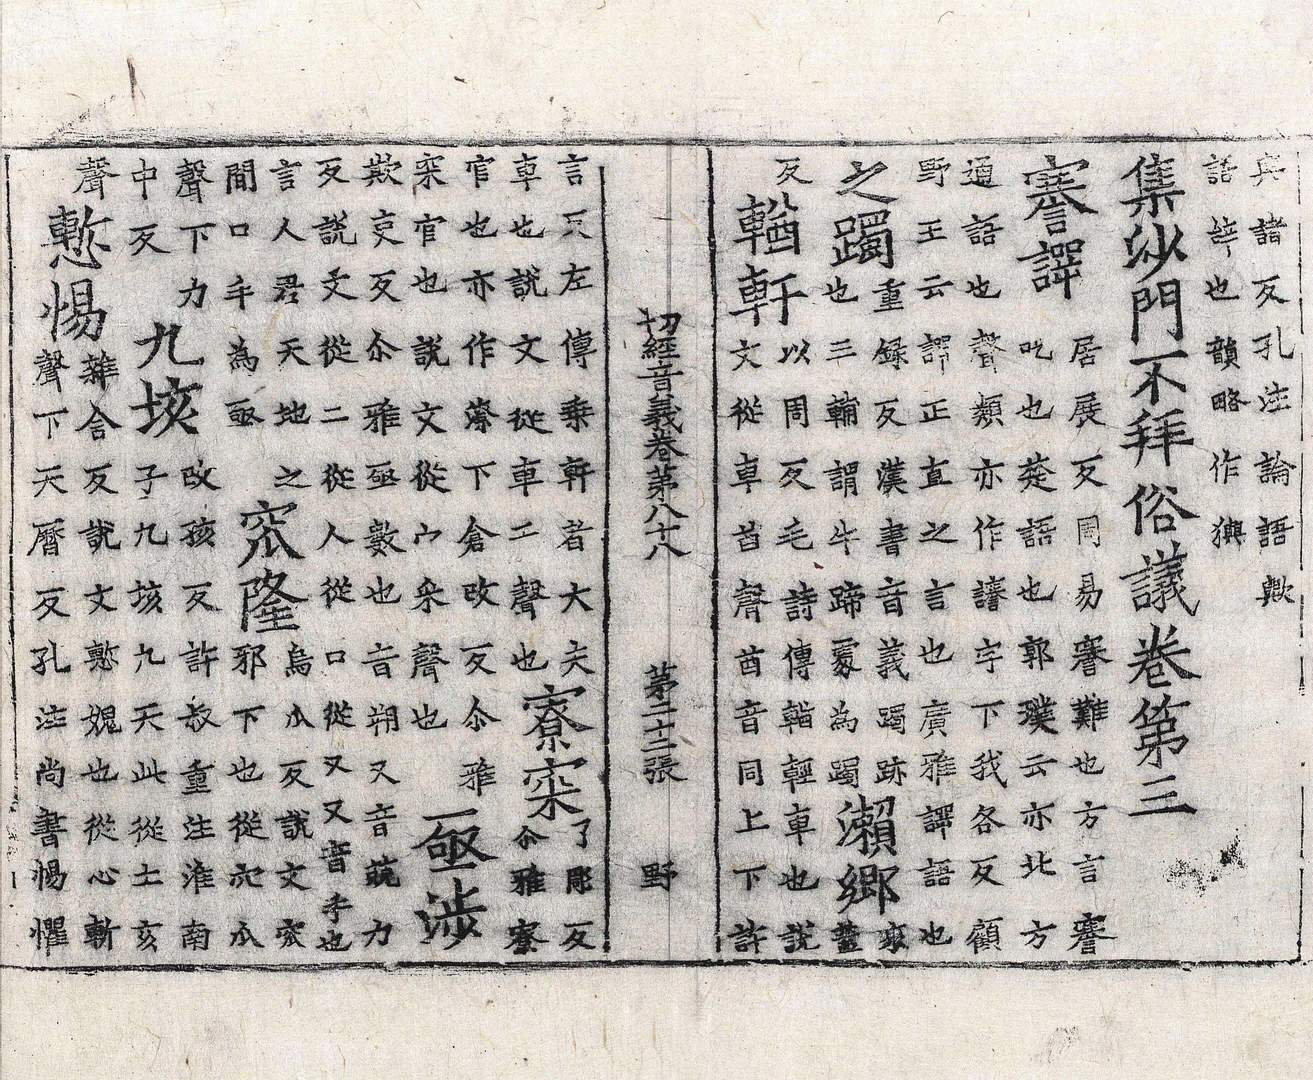 與諸反孔注論語歟
語辝也韻略作
集沙門不拜俗議卷第三
謇諤居展反周易謇難也方言謇
吃也楚語也郭璞云亦北方
通語也聲類亦作讆字下我各反顧
野王云諤正直之言也廣雅諤語也
之躅重録反漢書音義躅跡
也三輔謂牛蹄處為躅
瀨鄉來
蓋
反
輶軒以周反毛詩傳輶輕車也說
文從車酋聲酋音同上下許
切經音義卷第八十八 第二十二張 野
言反左傳乗軒者大夫
車也說文從車干聲也
寮寀了彫反
尒雅寮
官也亦作寮下倉改反尒雅
寀官也說文從宀采聲也
亟涉
欺吏反尒雅亟數也音朔又音 力
反說文從二從人從口從又又音手也
言人君天地之
間口手為亟
窊隆烏瓜反說文窊
邪下也從穴瓜
聲下力
中反
九垓改孩反許叔重注淮南
子九垓九天此從土亥
聲
慙惕雜含反說文慙媿也從心斬
聲下天曆反孔注尚書惕懼